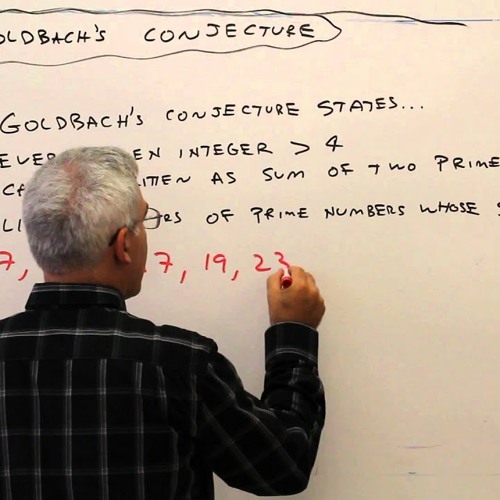 OLDBACH'S CONJECTURE
GOLDBACH'S CONJECTURE STATES...
EVER EN INTEGER > 4
CA ITTEN AS SUM OF TWO PRIME
LI RS OF PRIME NUMBERS WHOSE S
7, 17, 19, 23